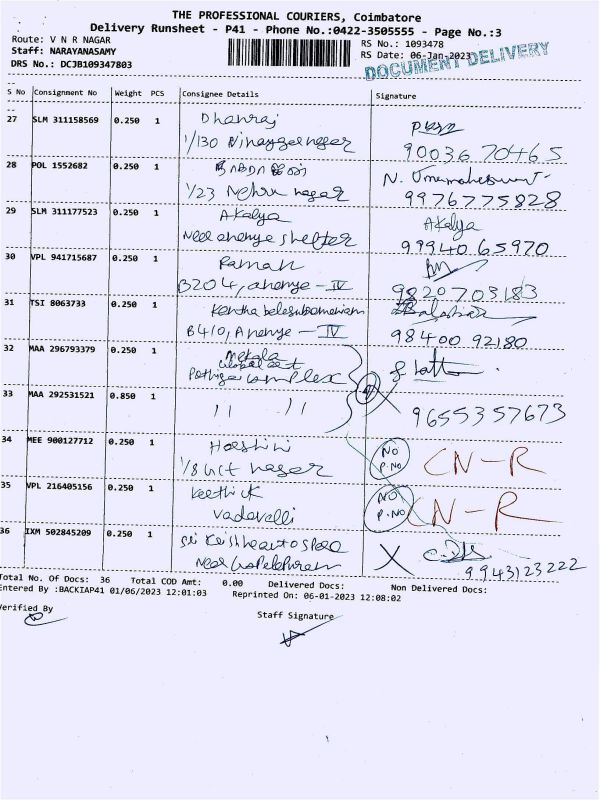 THE PROFESSIONAL COURIERS, Coimbatore
Delivery Runsheet - P41 - Phone No.:0422-3505555 - Page No.:3
Route: V N R NAGAR
RS No.: 1093478
Staff: NARAYANASAMY
RS Date: 06-Jan-2023
DRS No.: DCJB109347803
DOCUMENT DELIVERY
S No Consignment No Weight PCS Consignee Details Signature
27 SLM 311158569 0.250 1 Dhanraj
1/130 Vinayger nager
90036 70465
28 POL 1552682 0.250 1
1/23 Nehru nagar
N. Umamaheswari
9976775828
29 SLM 311177523 0.250 1 Akalya
Near ananya shelter
Akalya
99940 65970
30 VPL 941715687 0.250 1 Raman
B204, ananye - IV
9820703183
31 TSI 8063733 0.250 1 Kantha balasubramaniam
B410, Ananye - IV
98400 92180
32 MAA 296793379 0.250 1 Mekala
Global
complex
33 MAA 292531521 0.850 1 〃 〃
9655357673
34 MEE 900127712 0.250 1 Harshini
1/8 GCT nager
NO
P.NO
CN-R
35 VPL 216405156 0.250 1 Keethik
Vadavalli
NO
P.NO
CN-R
36 IXM 502845209 0.250 1 Sri
Near
9943123222
Total No. Of Docs: 36 Total COD Amt: 0.00 Delivered Docs: Non Delivered Docs:
Entered By :BACKIAP41 01/06/2023 12:01:03 Reprinted On: 06-01-2023 12:08:02
Verified By
Staff Signature